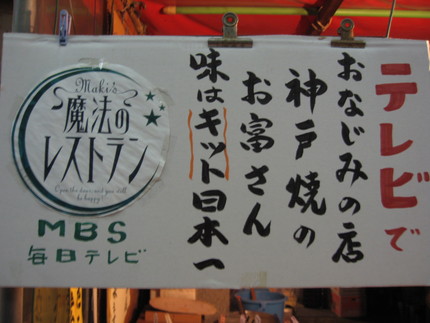 テレビで
おなじみの店
神戸焼の
お富さん
味はキット日本一
Maki's
魔法の
レストラン
Open the door, and you will
be happy!
MBS
毎日テレビ